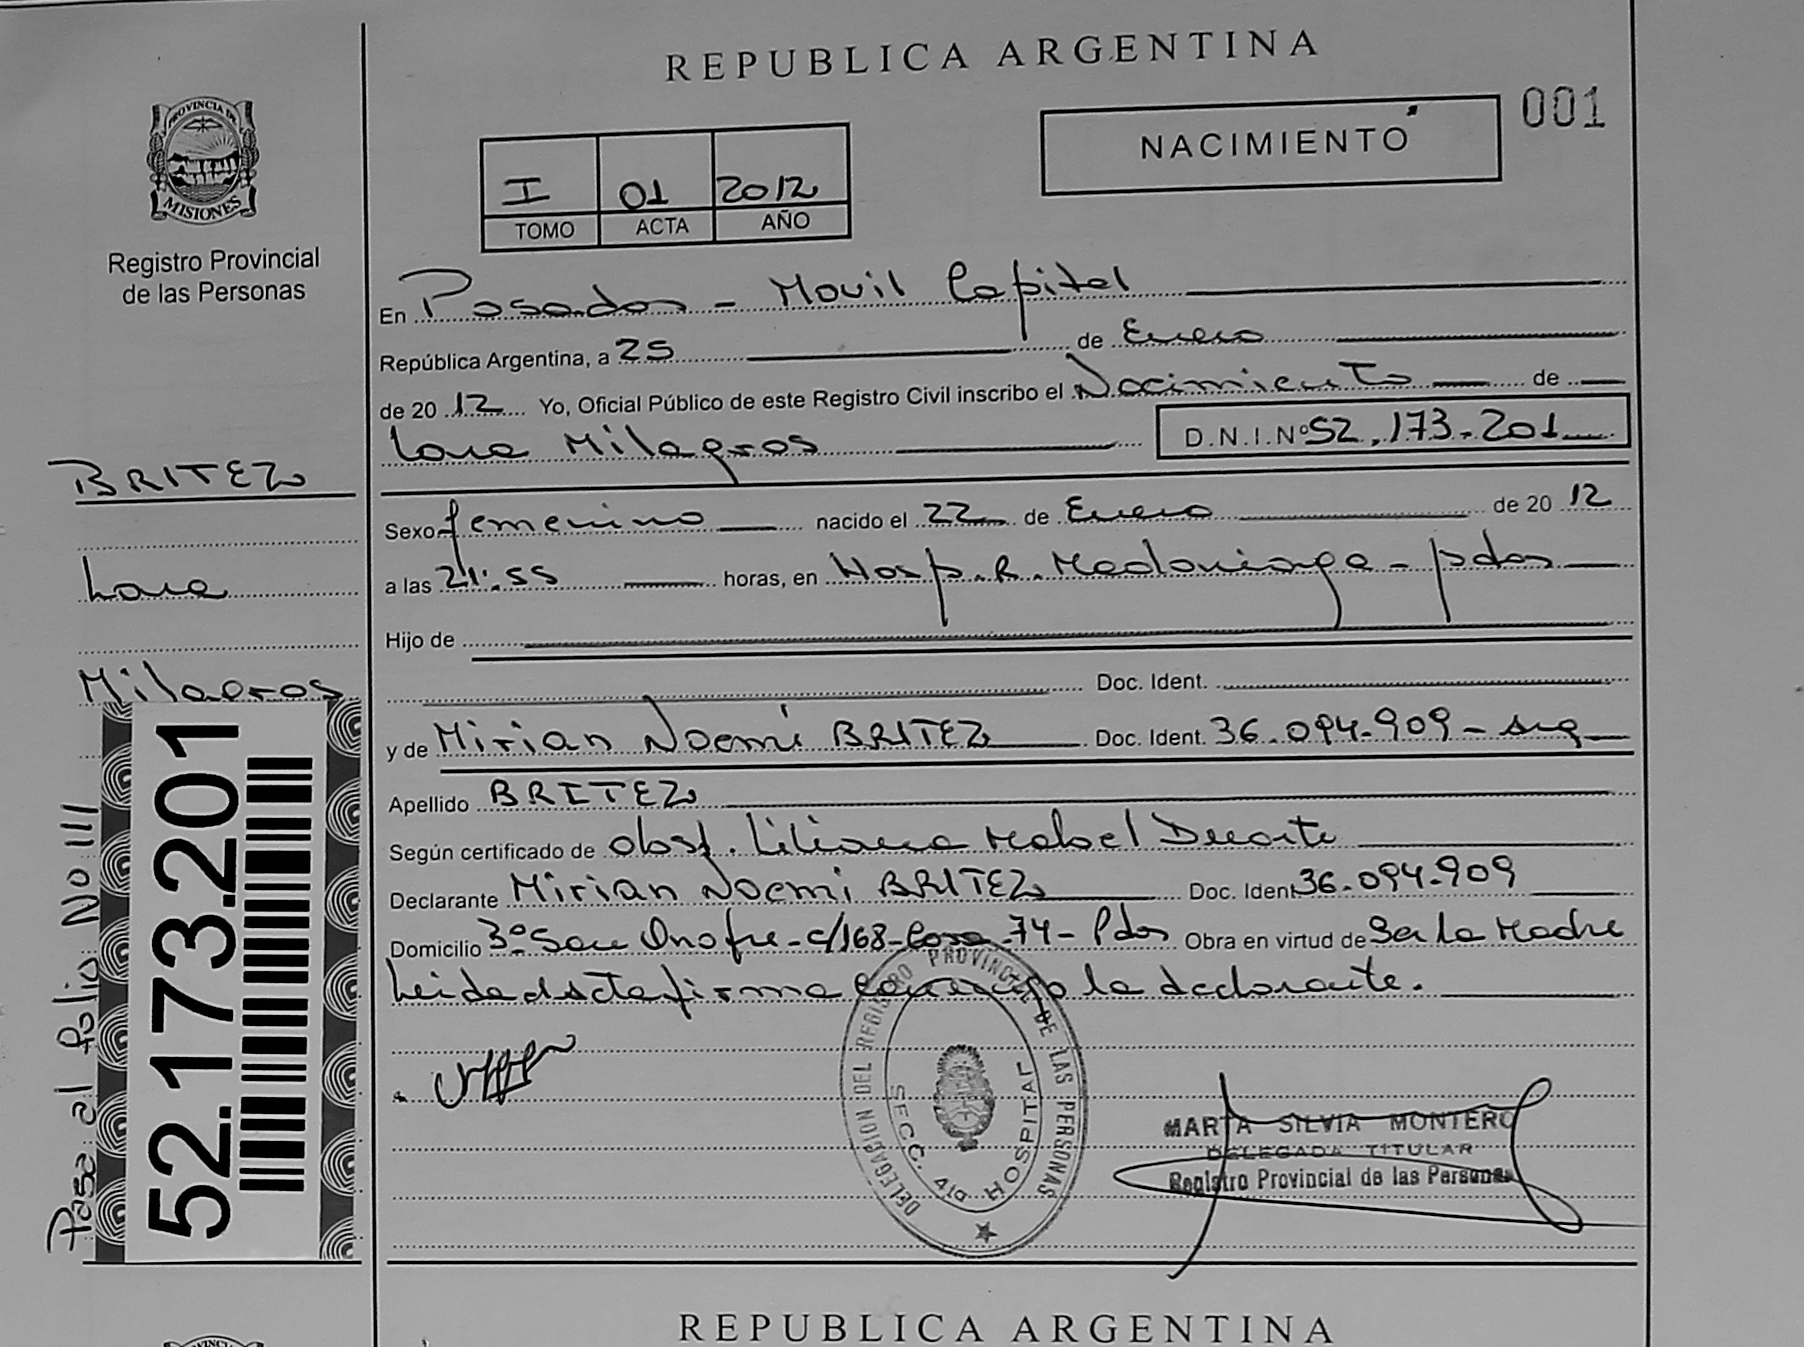 REPUBLICA ARGENTINA
001
NACIMIENTO
I 01 2012
TOMO ACTA AÑO
PROVINCIA DE
MISIONES
Registro Provincial
de las Personas
BRITEZ
Lara
Milagros
52.173.201
Pasa al folio No 111
En Posadas - Movil Capital
República Argentina, a 25 de Enero
de 20 12 Yo, Oficial Público de este Registro Civil inscribo el Nacimiento de
Lara Milagros D.N.I.Nº 52.173.201
Sexo femenino nacido el 22 de Enero de 20 12
a las 21:55 horas, en Hosp. R. Madariaga - pdas
Hijo de
Doc. Ident.
y de Mirian Noemí BRITEZ Doc. Ident. 36.094.909 - arg
Apellido BRITEZ
Según certificado de obst. Liliana Mabel Duarte
Declarante Mirian Noemi BRITEZ Doc. Ident. 36.094.909
Domicilio 3º San Onofre - c/168 - Casa 74 - Pdas Obra en virtud de Ser la Madre
Leida el acta firma conmigo la declarante.
DELEGACION DEL REGISTRO PROVINCIAL DE LAS PERSONAS
SECC. 4ta HOSPITAL
MARTA SILVIA MONTERO
DELEGADA TITULAR
Registro Provincial de las Personas
REPUBLICA ARGENTINA